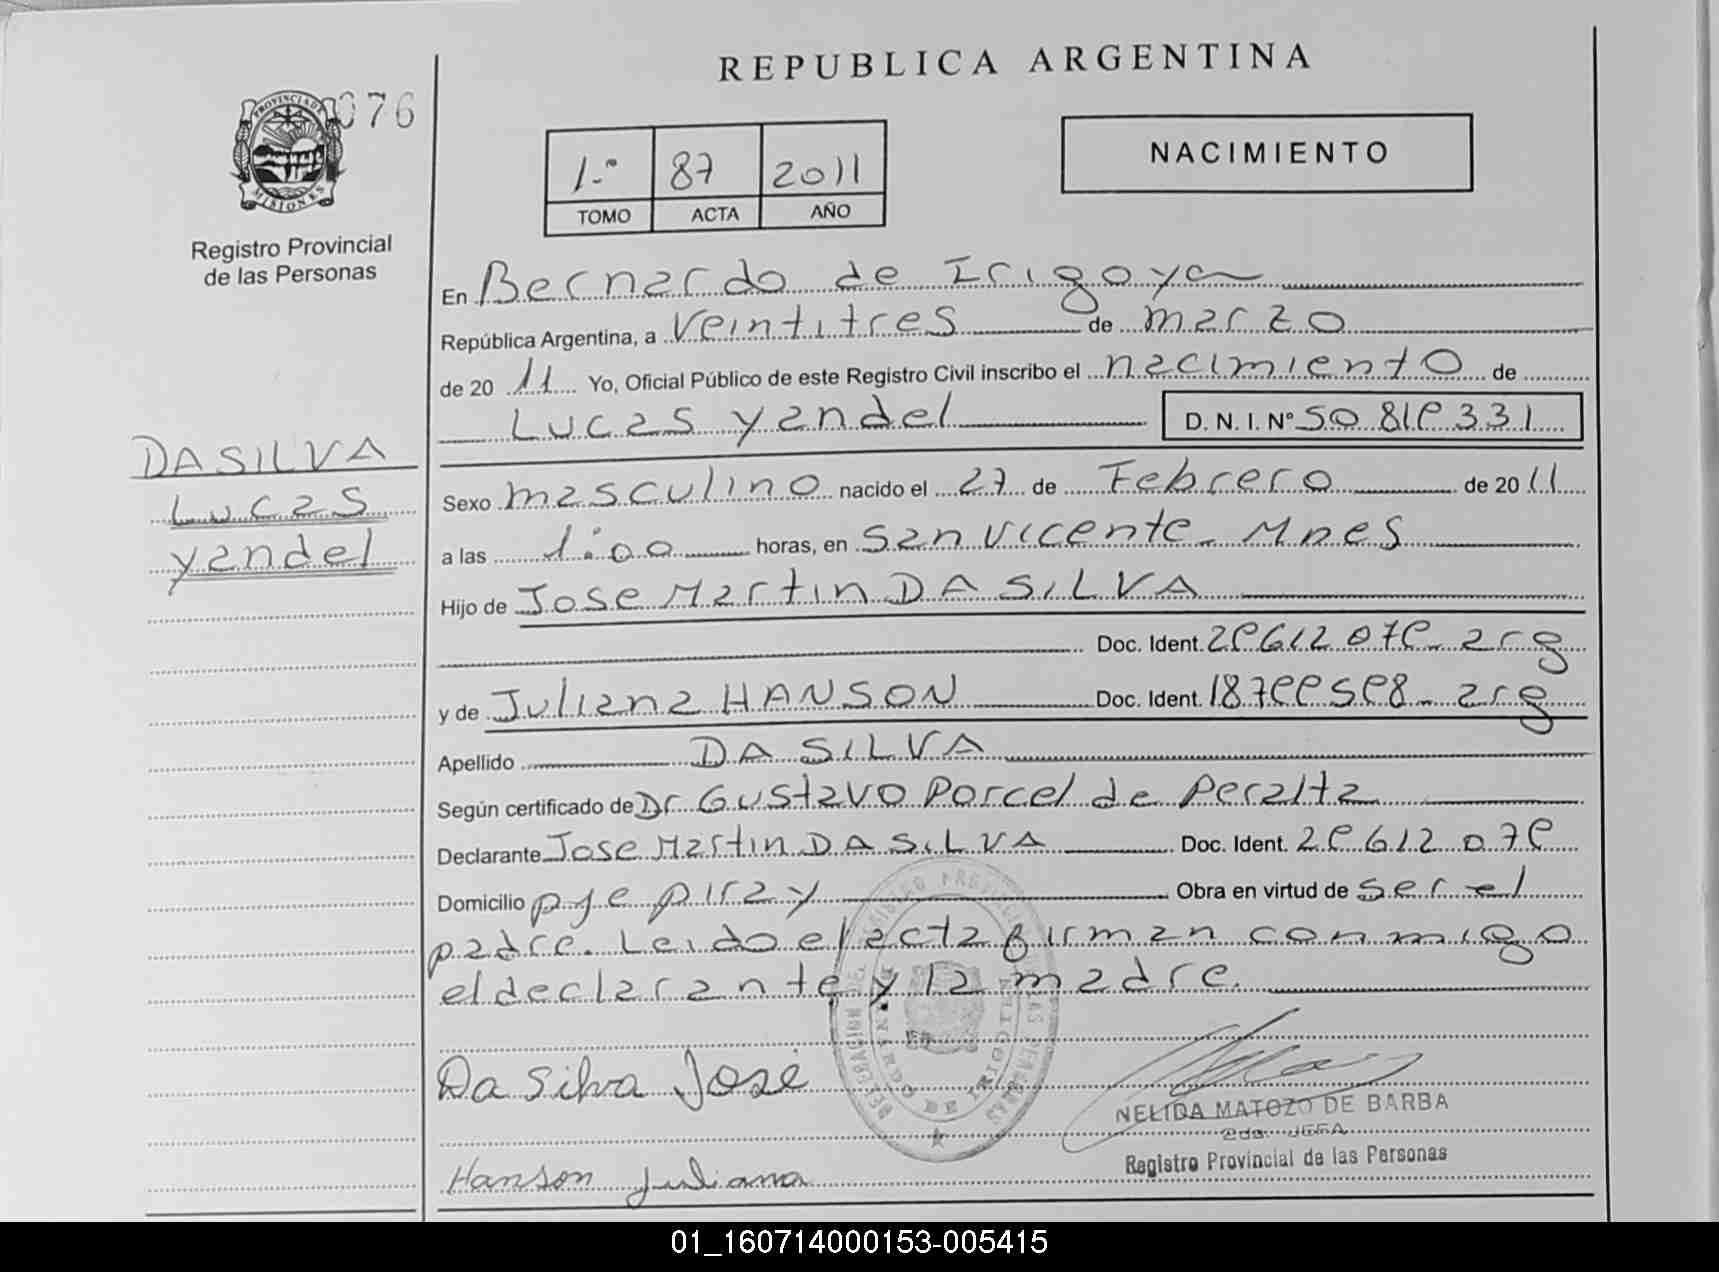 REPUBLICA ARGENTINA
076
PROVINCIA DE
MISIONES
Registro Provincial
de las Personas
1.º 87 2011
TOMO ACTA AÑO
NACIMIENTO
En Bernardo de Irigoyen
República Argentina, a veintitres de marzo
de 2011 Yo, Oficial Público de este Registro Civil inscribo el nacimiento de
Lucas Yandel D. N. I. Nº 50.819.331
DA SILVA
Lucas
Yandel
Sexo masculino nacido el 27 de Febrero de 2011
a las 1:00 horas, en San Vicente - Mnes
Hijo de Jose Martin DA SILVA
Doc. Ident. 29.612.079 - arg
y de Juliana HANSON Doc. Ident. 18799598 - arg
Apellido DA SILVA
Según certificado de Dr Gustavo Porcel de Peralta
Declarante Jose Martin DA SILVA Doc. Ident. 29.612.079
Domicilio pje piray Obra en virtud de ser el
padre. Leido el acta firman conmigo
el declarante y la madre.
Da Silva José
NELIDA MATOZO DE BARBA
2da. JEFA
Registro Provincial de las Personas
Hanson Juliana
01_160714000153-005415